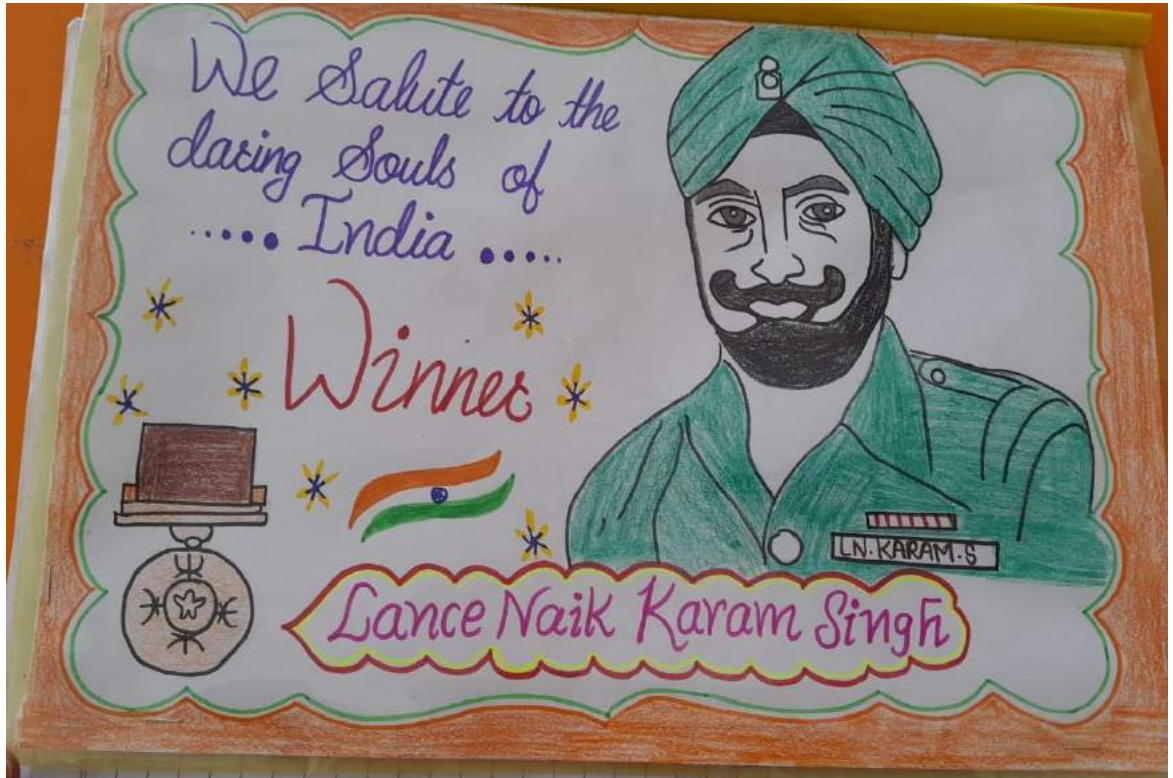 We Salute to the
daring Souls of
..... India .....
Winner
LN.KARAM.S
Lance Naik Karam Singh